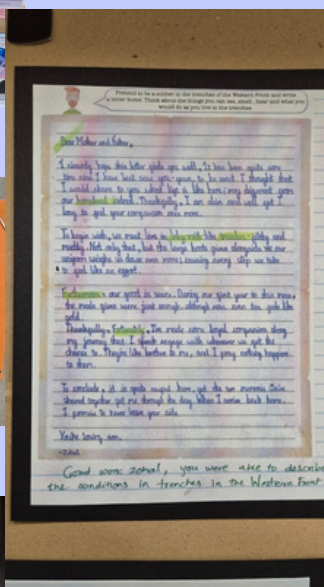 Pretend to be a soldier in the trenches of the Western Front and write
a letter home. Think about the things you can see, smell, hear and what you
would do as you live in the trenches
Dear Mother and Father,
I sincerely hope this letter finds you well. It has been quite some
time since I have last seen you - years, to be exact. I thought that
I would share to you what life is like here; very different from
our homeland indeed. Thankfully, I am alive and well yet I
long to feel your companion once more.
To begin with, we must live in trenches - and
muddy. Not only that, but the large boots given alongside of our
uniform weighs us down even more; causing every step we take
to feel like an effort.
Furthermore, our food is scarce. During our first year to this
the meals given were just enough, although now, even tea feels like
gold.
Thankfully, I've made some loyal companions along
my journey that I engage with whenever we get the
chance to. They're like brothers to me, and I pray nothing happens
to them.
To conclude, it is quite here, yet the memories we've
shared together get me through the day. When I arrive back home,
I promise to never leave your side.
Your loving son,
-Zohal
Good work Zohal, you were able to describe
the conditions in trenches in the Western Front